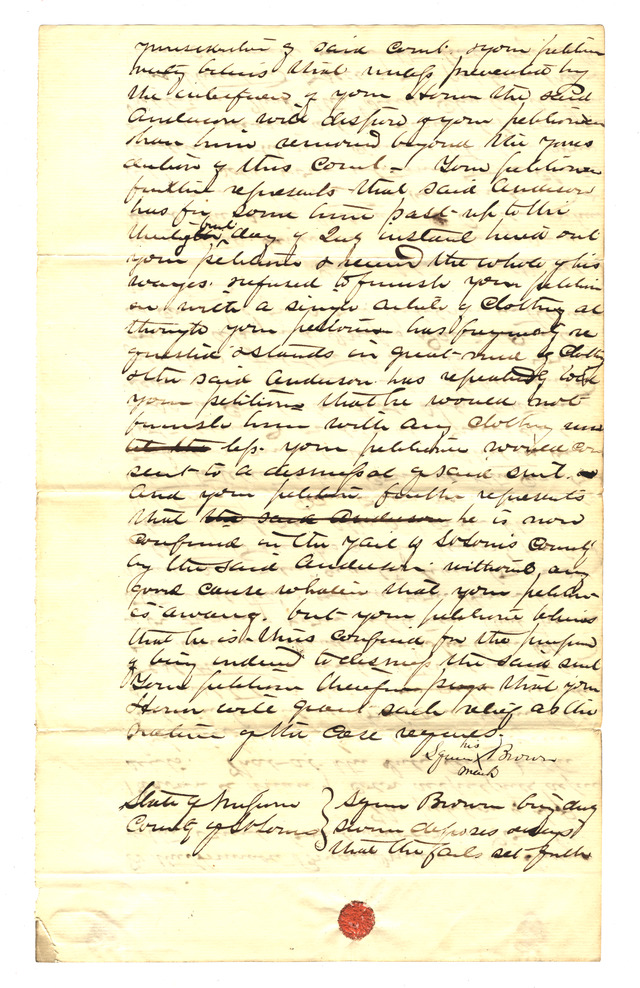 of said Court. & your petition
believes that unless prevented by
the interference of your Honor the said
Anderson will dispose of your petitioner &
have him removed beyond the juris
diction of this Court – Your petitioner
further represents that said Anderson
has for some time past up to the
day of July instant hired out
your petitioner & received the whole of his
wages. refused to furnish your petition
er with a single article of Clothing al
though your petitioner has frequently re
quested & stands in great need of Clothing
& the said Anderson has repeatedly told
your petitioner that he would not
furnish him with any clothing un
til the less your petitioner would con
sent to a dismissal of said suit. –
And your petitioner further represents
that the said Anderson he is now
confined in the Jail of St Louis County
by the said Anderson without any
good cause whatever that your petitioner
is aware of. but your petitioner believes
that he is thus confined for the purpose
of being induced to dismiss the said suit
Your petitioner therefore prays that your
Honor will grant such relief as the
nature of the case requires.
his
Squire X Brown
mark
State of Missouri } Squire Brown being duly
County of St Louis } sworn deposes & says
that the facts set forth